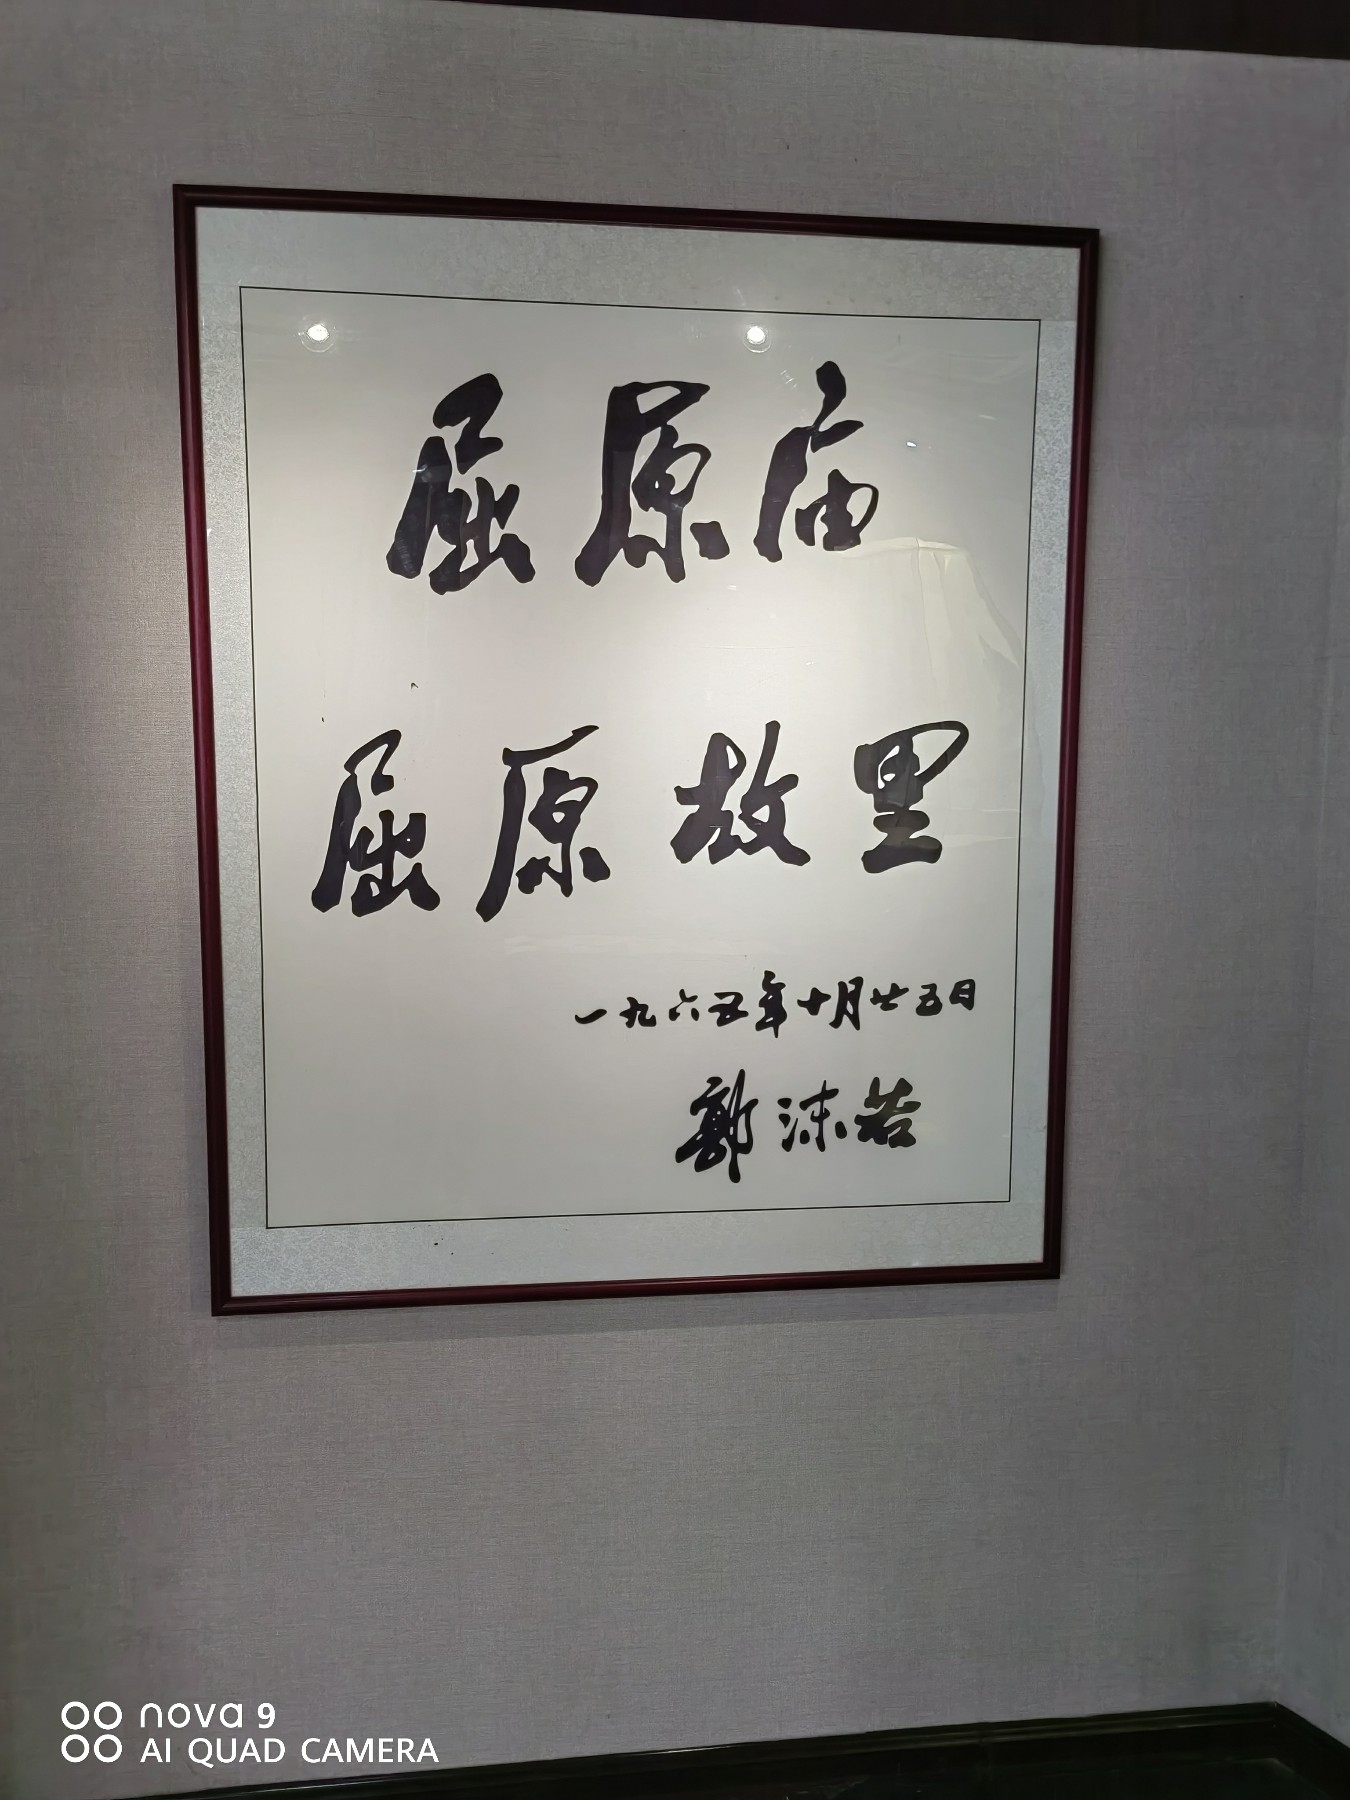 屈原庙
屈原故里
一九六五年十月廿五日
郭沫若
nova 9
AI QUAD CAMERA